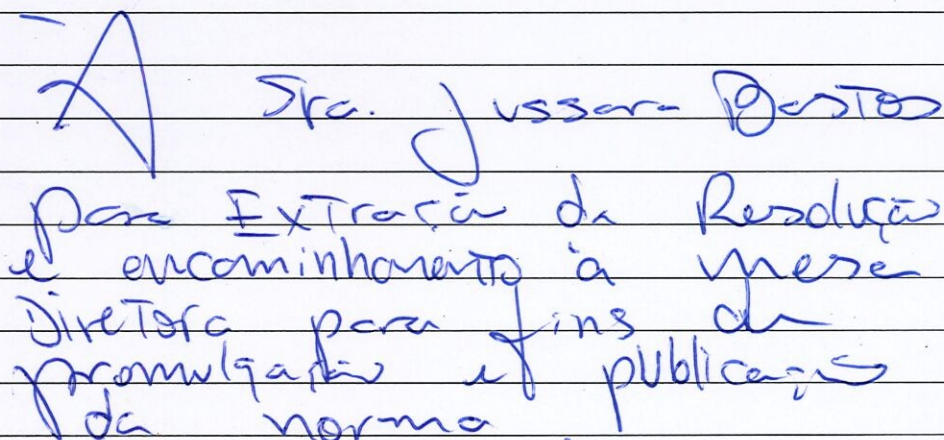 À Sra. Jussara Bastos
para Extração da Resolução
e encaminhamento à mesa
Diretora para fins de
promulgação e publicação
da norma.